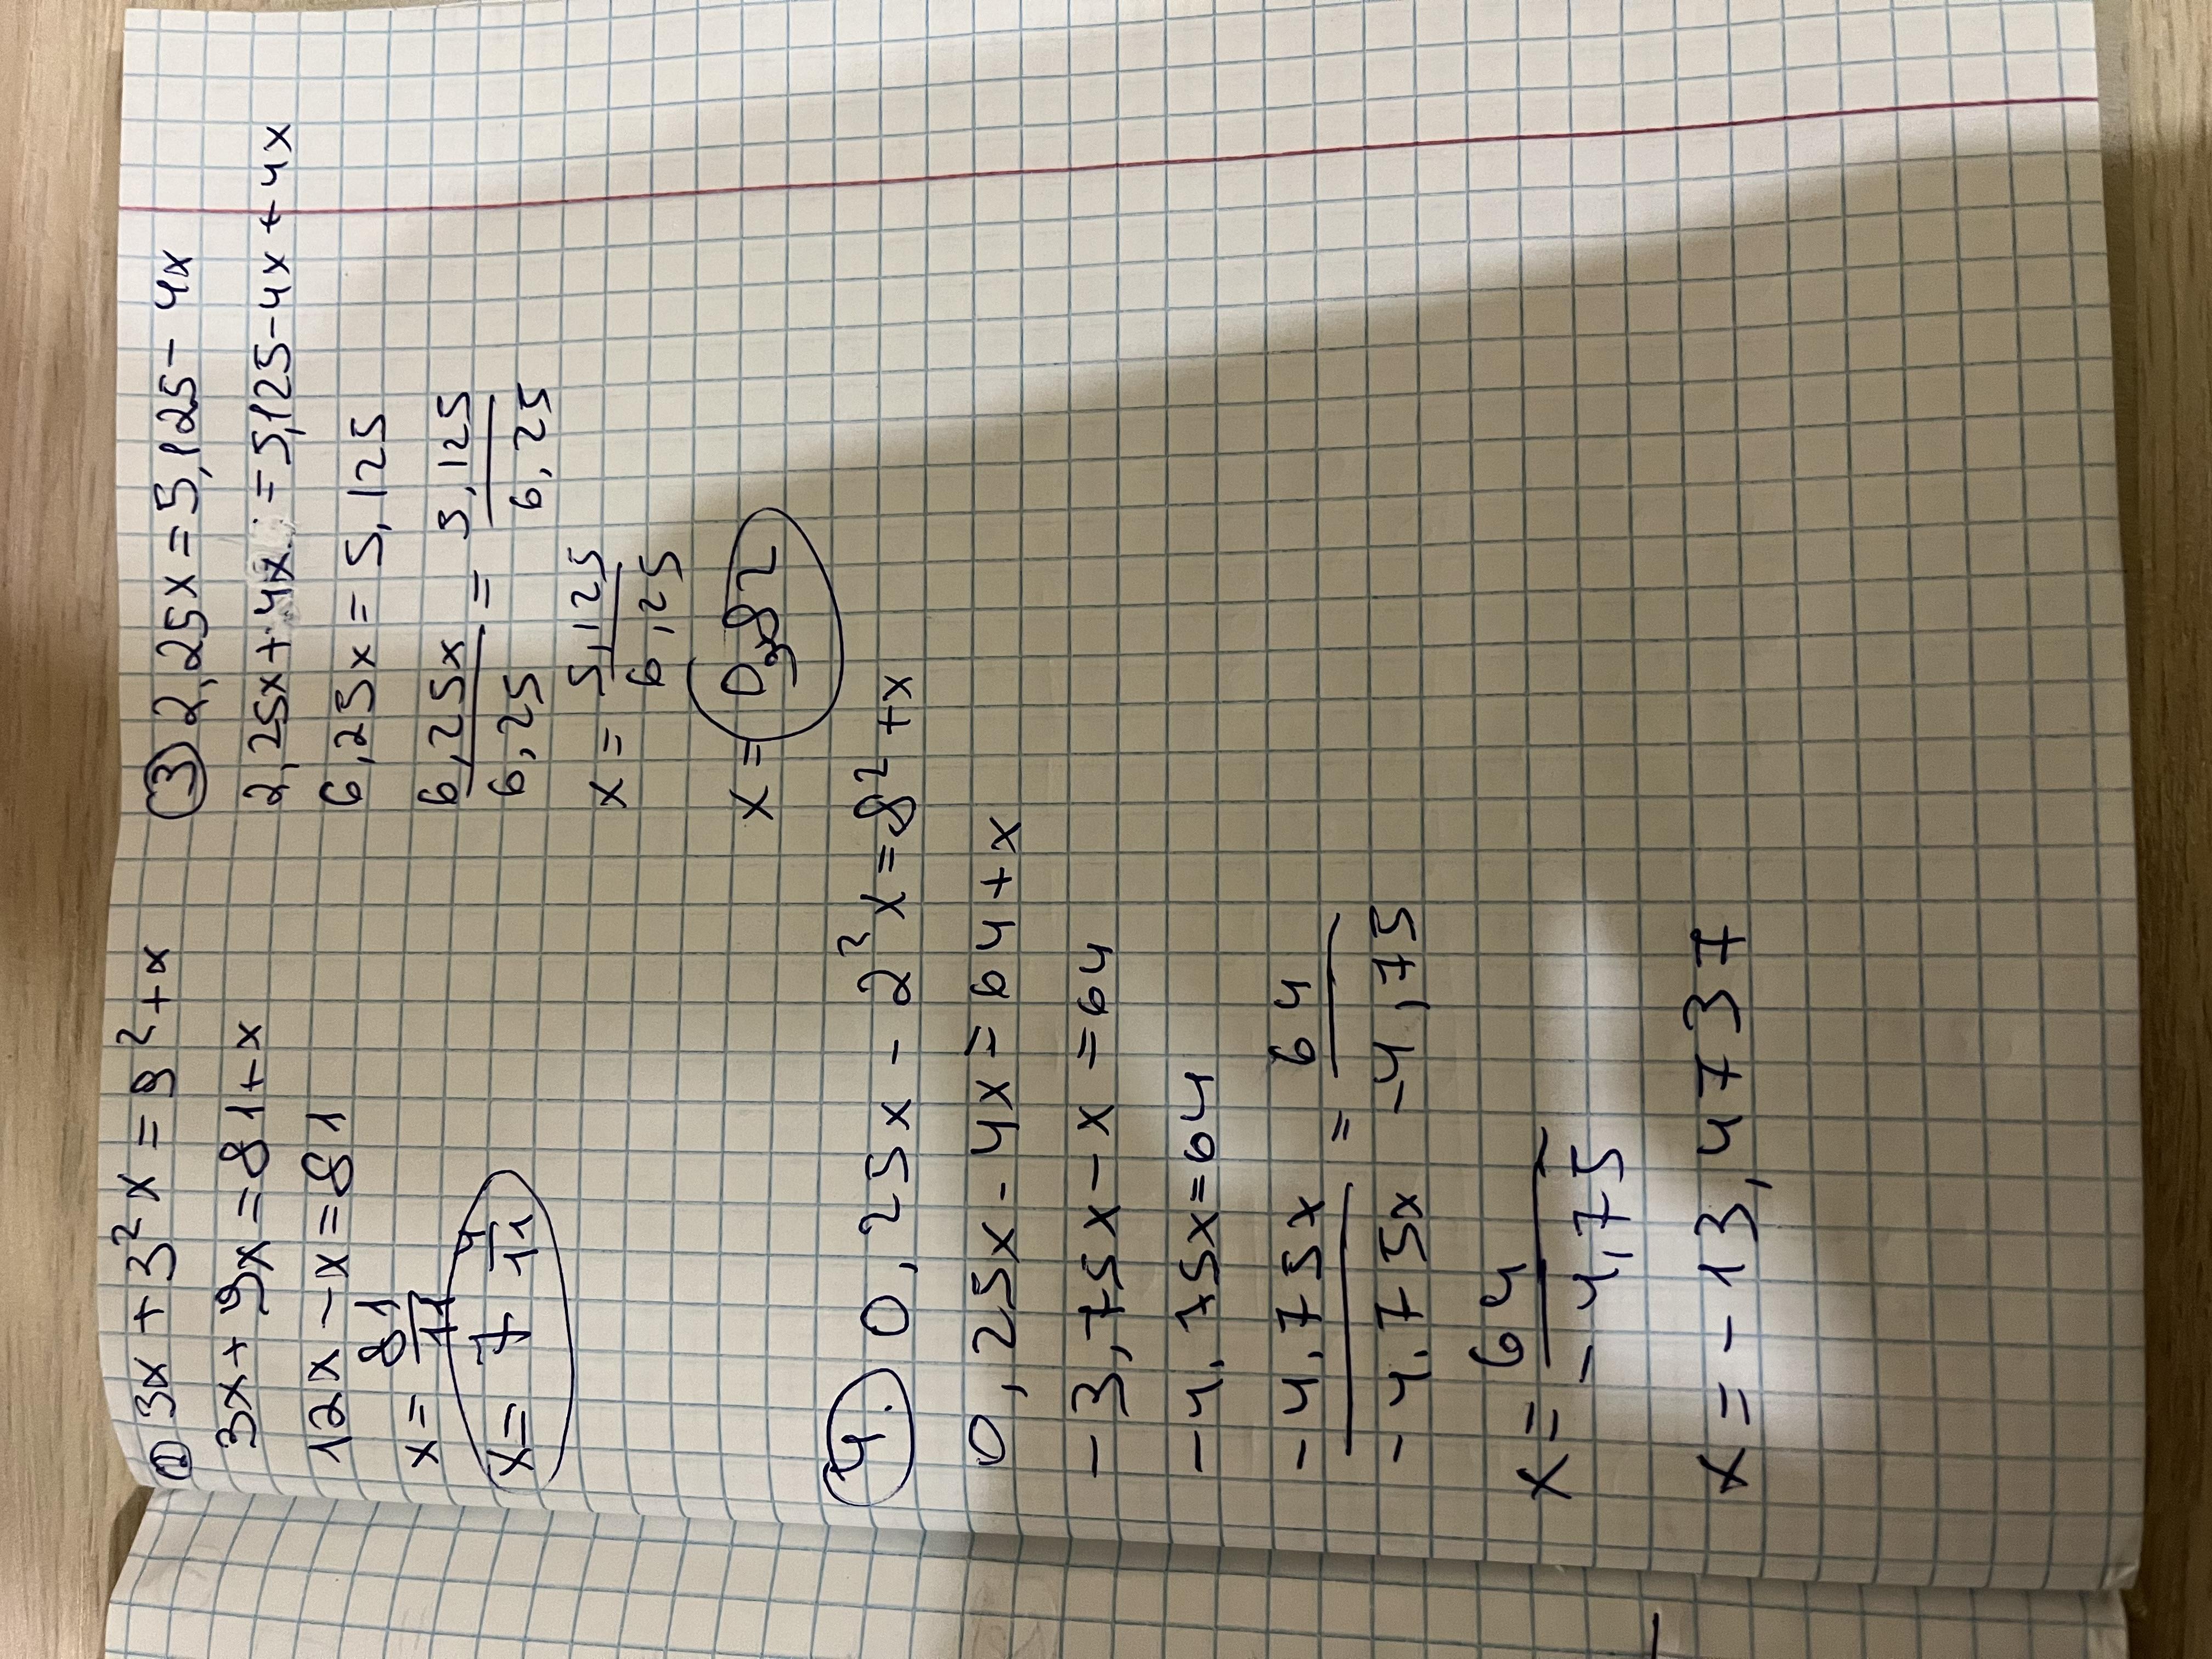 ② 3x + 3²x = 9² + x
3x + 9x = 81 + x
12x - x = 81
x = 81/11
x = 7 4/11
③ 2,25x = 5,125 - 4x
2,25x + 4x = 5,125 - 4x + 4x
6,25x = 5,125
6,25x/6,25 = 5,125/6,25
x = 5,125/6,125
x = 0,82
4. 0,25x - 2²x = 8² + x
0,25x - 4x = 64 + x
-3,75x - x = 64
-4,75x = 64
-4,75x/-4,75x = 64/-4,75
x = 64/-4,75
x = -13,4737